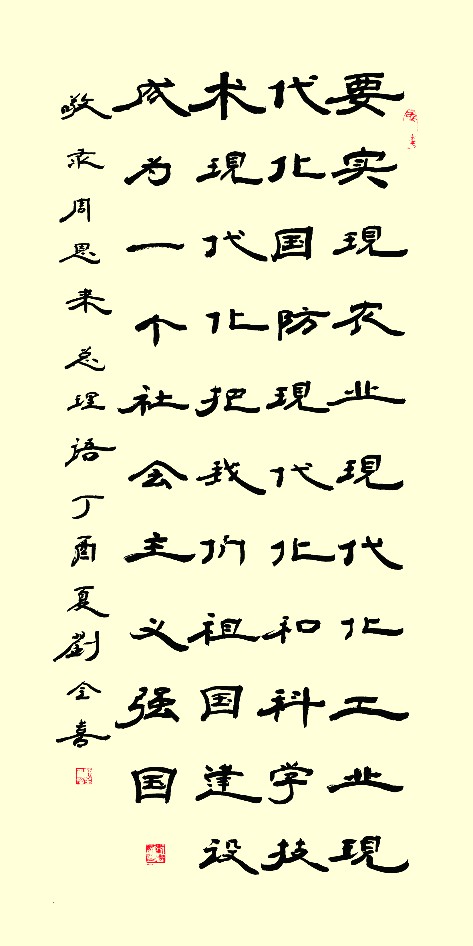 要实現农业現代化工业現
代化国防現代化和科学技
术現代化把我们祖国建设
成为一个社会主义强国
敬录周恩来总理语丁酉夏劉全喜